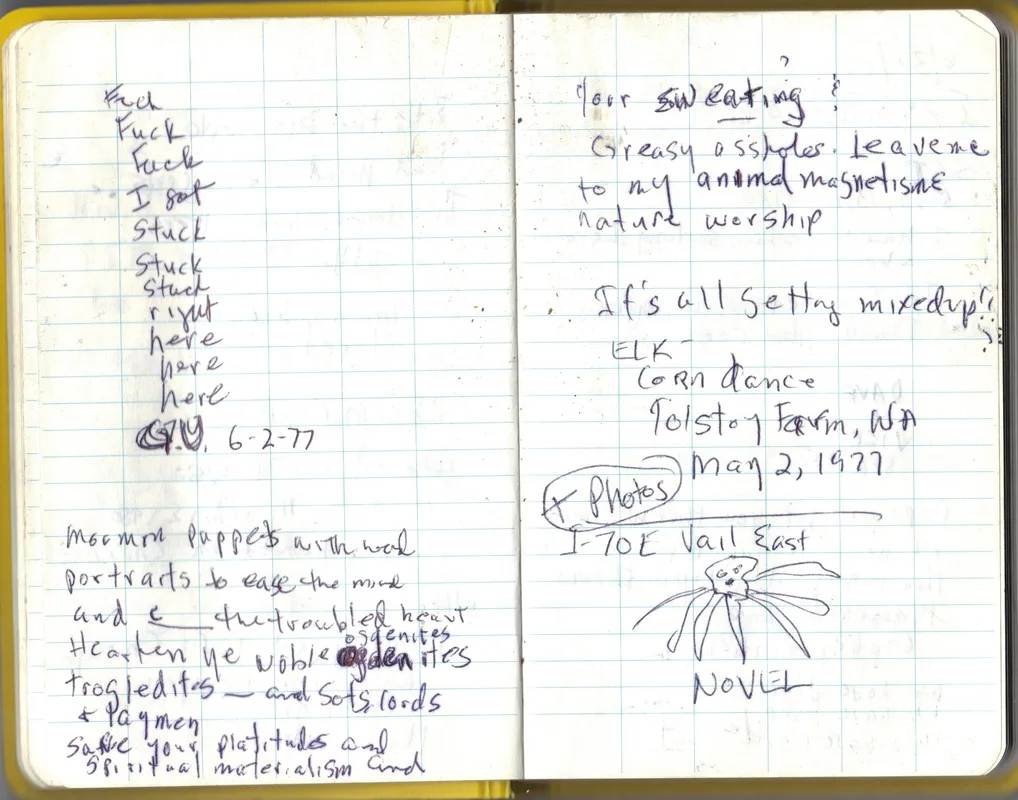 Fuck
Fuck
Fuck
I got
Stuck
Stuck
stuck
right
here
here
here
G.V. 6-2-77
Mormon puppets with
portraits to ease the mind
and e___ the troubled heart
Hearten ye noble ogdenites
ogdenites
trogledites — and sots, lords
+ Laymen
save your platitudes and
spiritual materialism and
?
your sweating !
Greasy assholes. Leave me
to my animal magnetisme
nature worship
It's all getting mixed up!!
ELK -
Corn dance
Tolstoy Farm, WA
May 2, 1977
+ Photos
I-70E Vail East
NOVEL